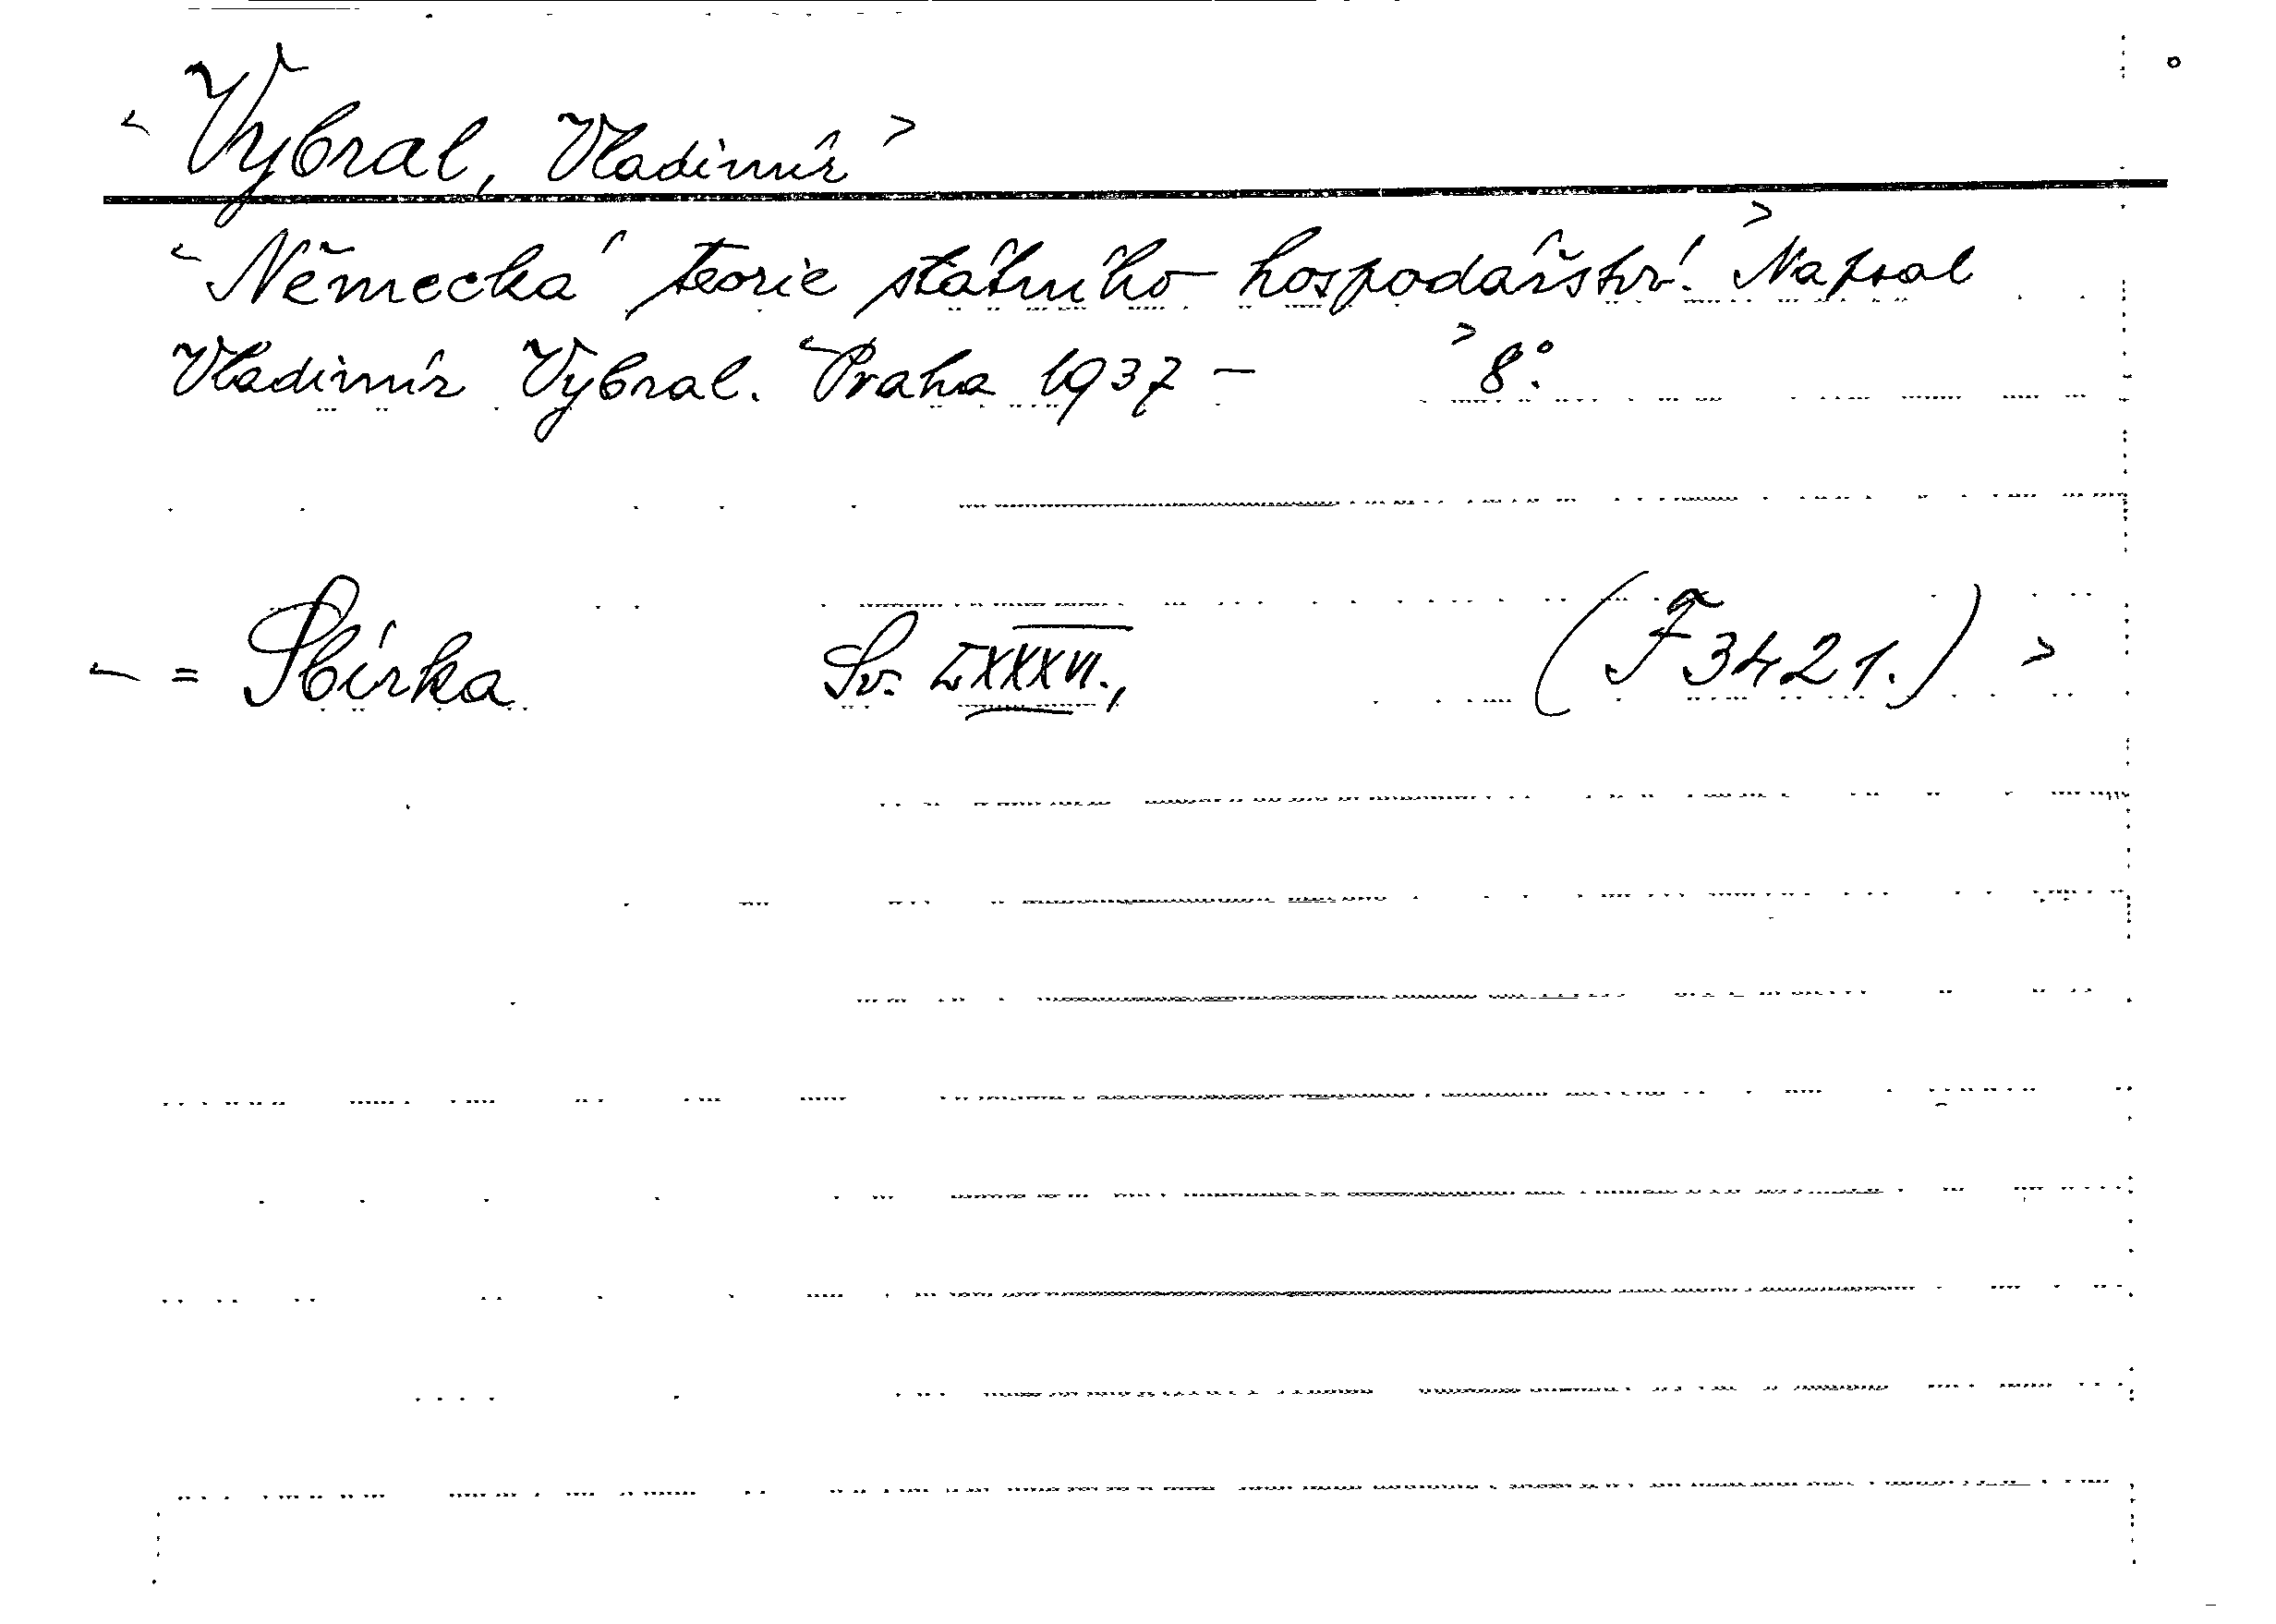 <Vybral, Vladimír>
<Německá teorie státního hospodářství.> Napsal
Vladimír Vybral. <Praha 1937 – > 8°.
< = Sbírka Sv. LXXXVI., (F 3421.) >